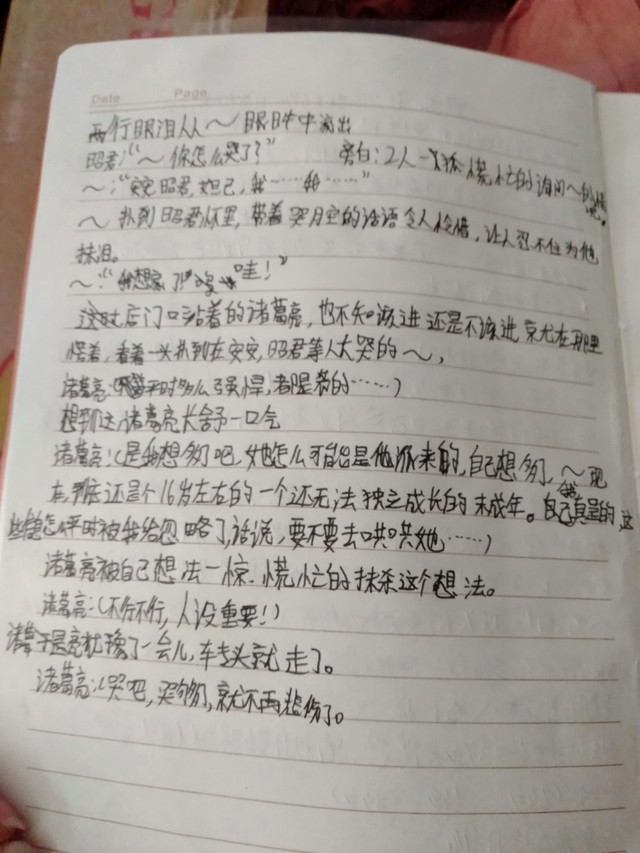 Date Page
两行眼泪从～眼眶中流出
昭君:“～你怎么哭了?” 旁白:2人一脸慌忙的询问～的情况。
～:“安安昭君,妲己,我……我……”
～扑到昭君怀里,带着哭腔的话语令人怜惜,让人忍不住为他
抹泪。
～:“我想家了!哇!”
这时后门口站着的诸葛亮,也不知该进还是不该进就在那里
愣着,看着一头扑到在安安,昭君等人大哭的～,
诸葛亮:(平时多么强悍,都是装的……)
想到这,诸葛亮长舒一口气
诸葛亮:(是我想多了吧,她怎么可能是他派来的,自己想多了,～现
在,到底还是个16岁左右的一个还无法独立成长的未成年。自己真是的,这
些怎么平时被我给忽略了,话说,要不要去哄哄她……)
诸葛亮被自己想法一惊.慌忙的抹杀这个想法。
诸葛亮:(不行不行,人设重要!)
于是诸葛亮犹豫了一会儿,转头就走了。
诸葛亮:(哭吧,哭够了,就不再悲伤了。